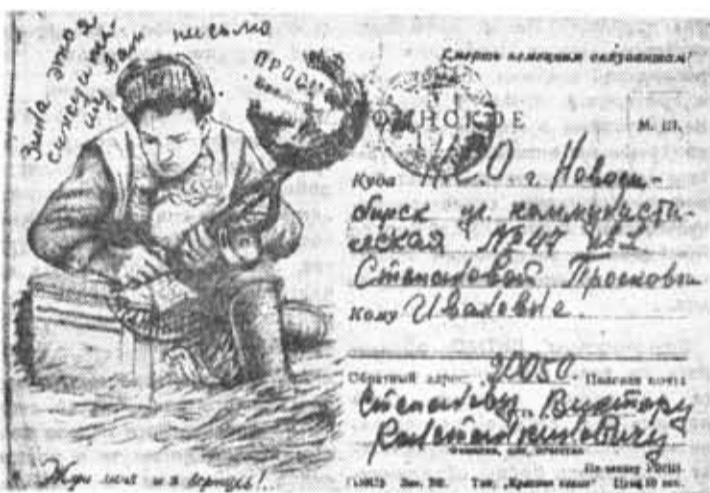 Зина этоя
сижу и пи
шу Вам письмо
Смерть немецким оккупантам
ПРОСМ
ОИНСКОЕ
М. П.
Куда НСО г. Новоси-
бирск ул. коммунисти-
ческая №47 кв 2
Степановой Просковьи
Кому Ивановне.
Обратный адрес: 20050 Полевая почта
Степанову Виктору
Константиновичу
Фамилия, имя, отчество
Жди меня и я вернусь!..
По заказу
Зак. Тип. „Красное знамя" Цена 10 коп.